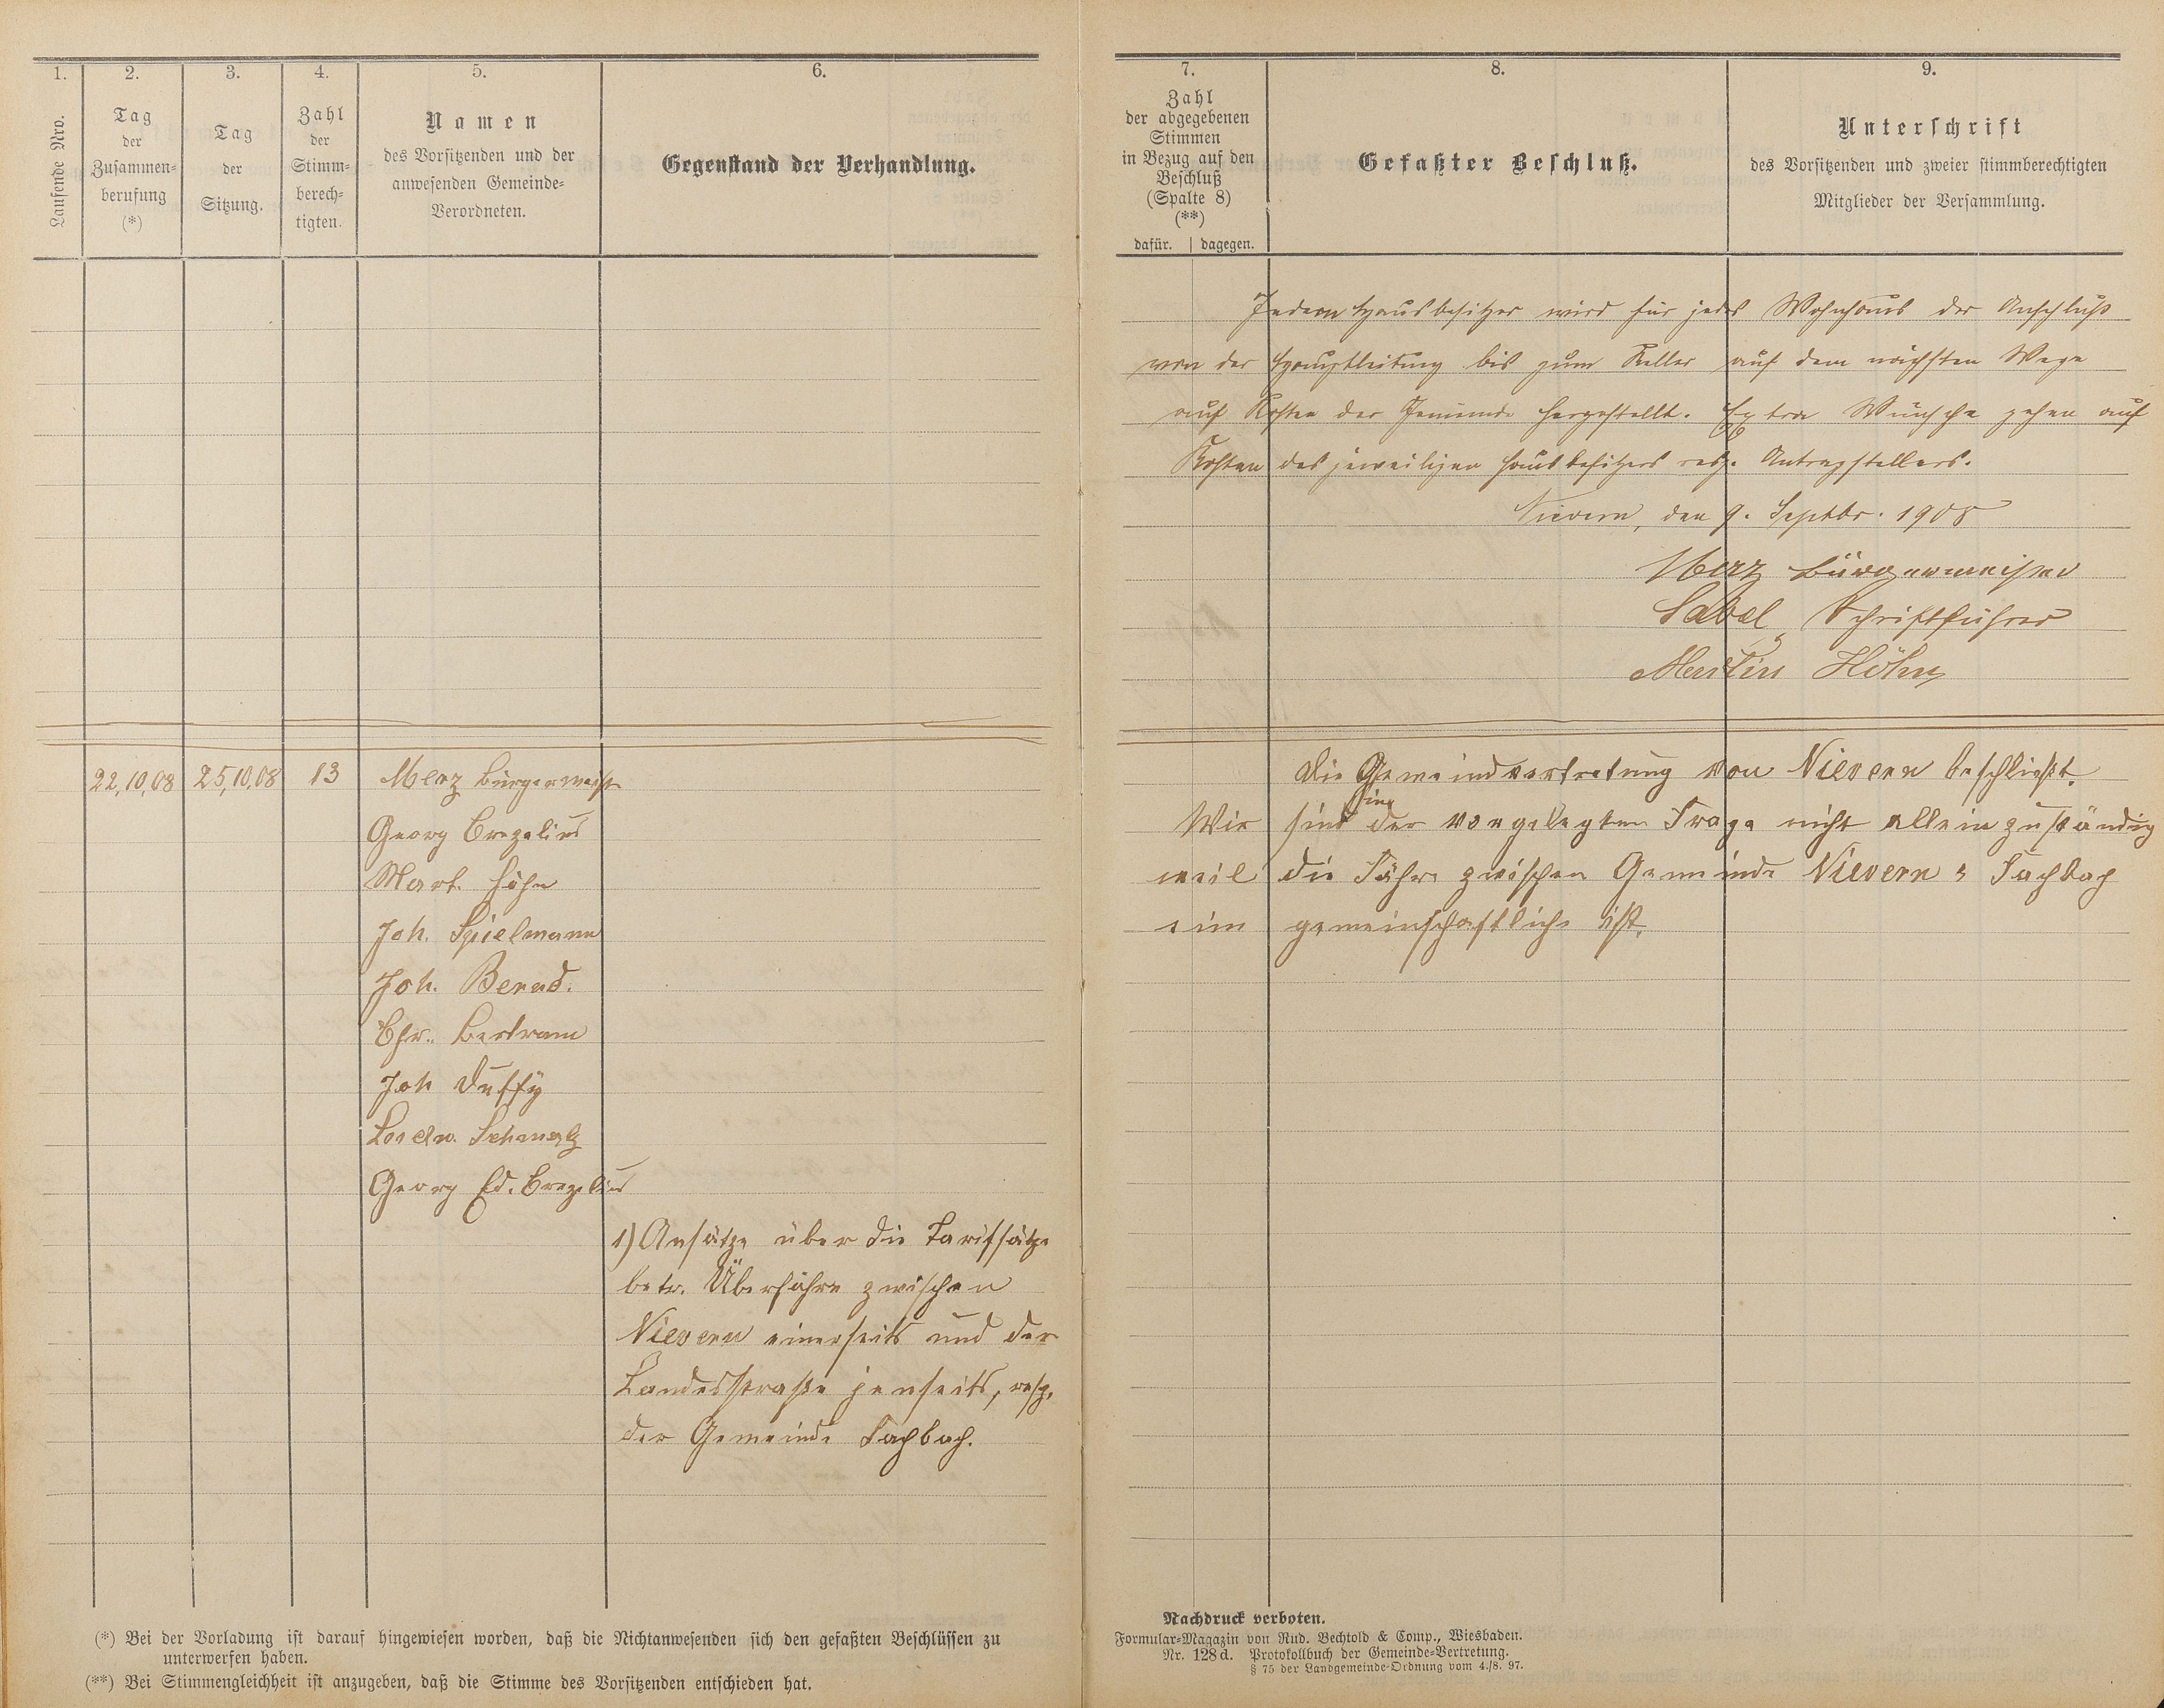 1.
Laufende Nro.
2.
Tag
der
Zusammen-
berufung
(*)
3.
Tag
der
Sitzung.
4.
Zahl
der
Stimm-
berech-
tigten.
5.
Namen
des Vorsitzenden und der
anwesenden Gemeinde-
Verordneten.
6.
Gegenstand der Verhandlung.
22,10,08 25,10,08 13 Merz Bürgermeistr
Georg Crezelius
Mart. Höhn
Joh. Spielmann
Joh. Bernd.
Chr. Bertram
Joh Duffÿ
Schmalz
Georg Ed. Crezelius
1) Ansätze über die Tarifsätze
betr. Überfähre zwischen
Nievern einerseits und der
Landesstraße jenseits, resp.
der Gemeinde Fachbach.
(*) Bei der Vorladung ist darauf hingewiesen worden, daß die Nichtanwesenden sich den gefaßten Beschlüssen zu
unterwerfen haben.
(**) Bei Stimmengleichheit ist anzugeben, daß die Stimme des Vorsitzenden entschieden hat.
7.
Zahl
der abgegebenen
Stimmen
in Bezug auf den
Beschluß
(Spalte 8)
(**)
dafür. | dagegen.
8.
Gefaßter Beschluß.
9.
Unterschrift
des Vorsitzenden und zweier stimmberechtigten
Mitglieder der Versammlung.
Jedem Hausbesitzer wird für jedes Wohnhaus der Anschluß
von der Hauptleitung bis zum Keller auf dem nächsten Wege
auf Kosten der Gemeinde hergestellt. Extra Wünsche gehen auf
Kosten des jeweiligen Hausbesitzers resp. Antragstellers.
Nievern, den 9. Septbr. 1908
Merz Bürgermeister
Sabel, Schriftführer
Martin Höhn
Die Gemeindevertretung von Nievern beschließt.
Wir sind in der vorgelegten Frage nicht allein zuständig
weil die Fähre zwischen Gemeinde Nievern & Fachbach
eine gemeinschaftliche ist.
Nachdruck verboten.
Formular-Magazin von Rud. Bechtold & Comp., Wiesbaden.
Nr. 128 d. Protokollbuch der Gemeinde-Vertretung.
§ 75 der Landgemeinde-Ordnung vom 4./8. 97.